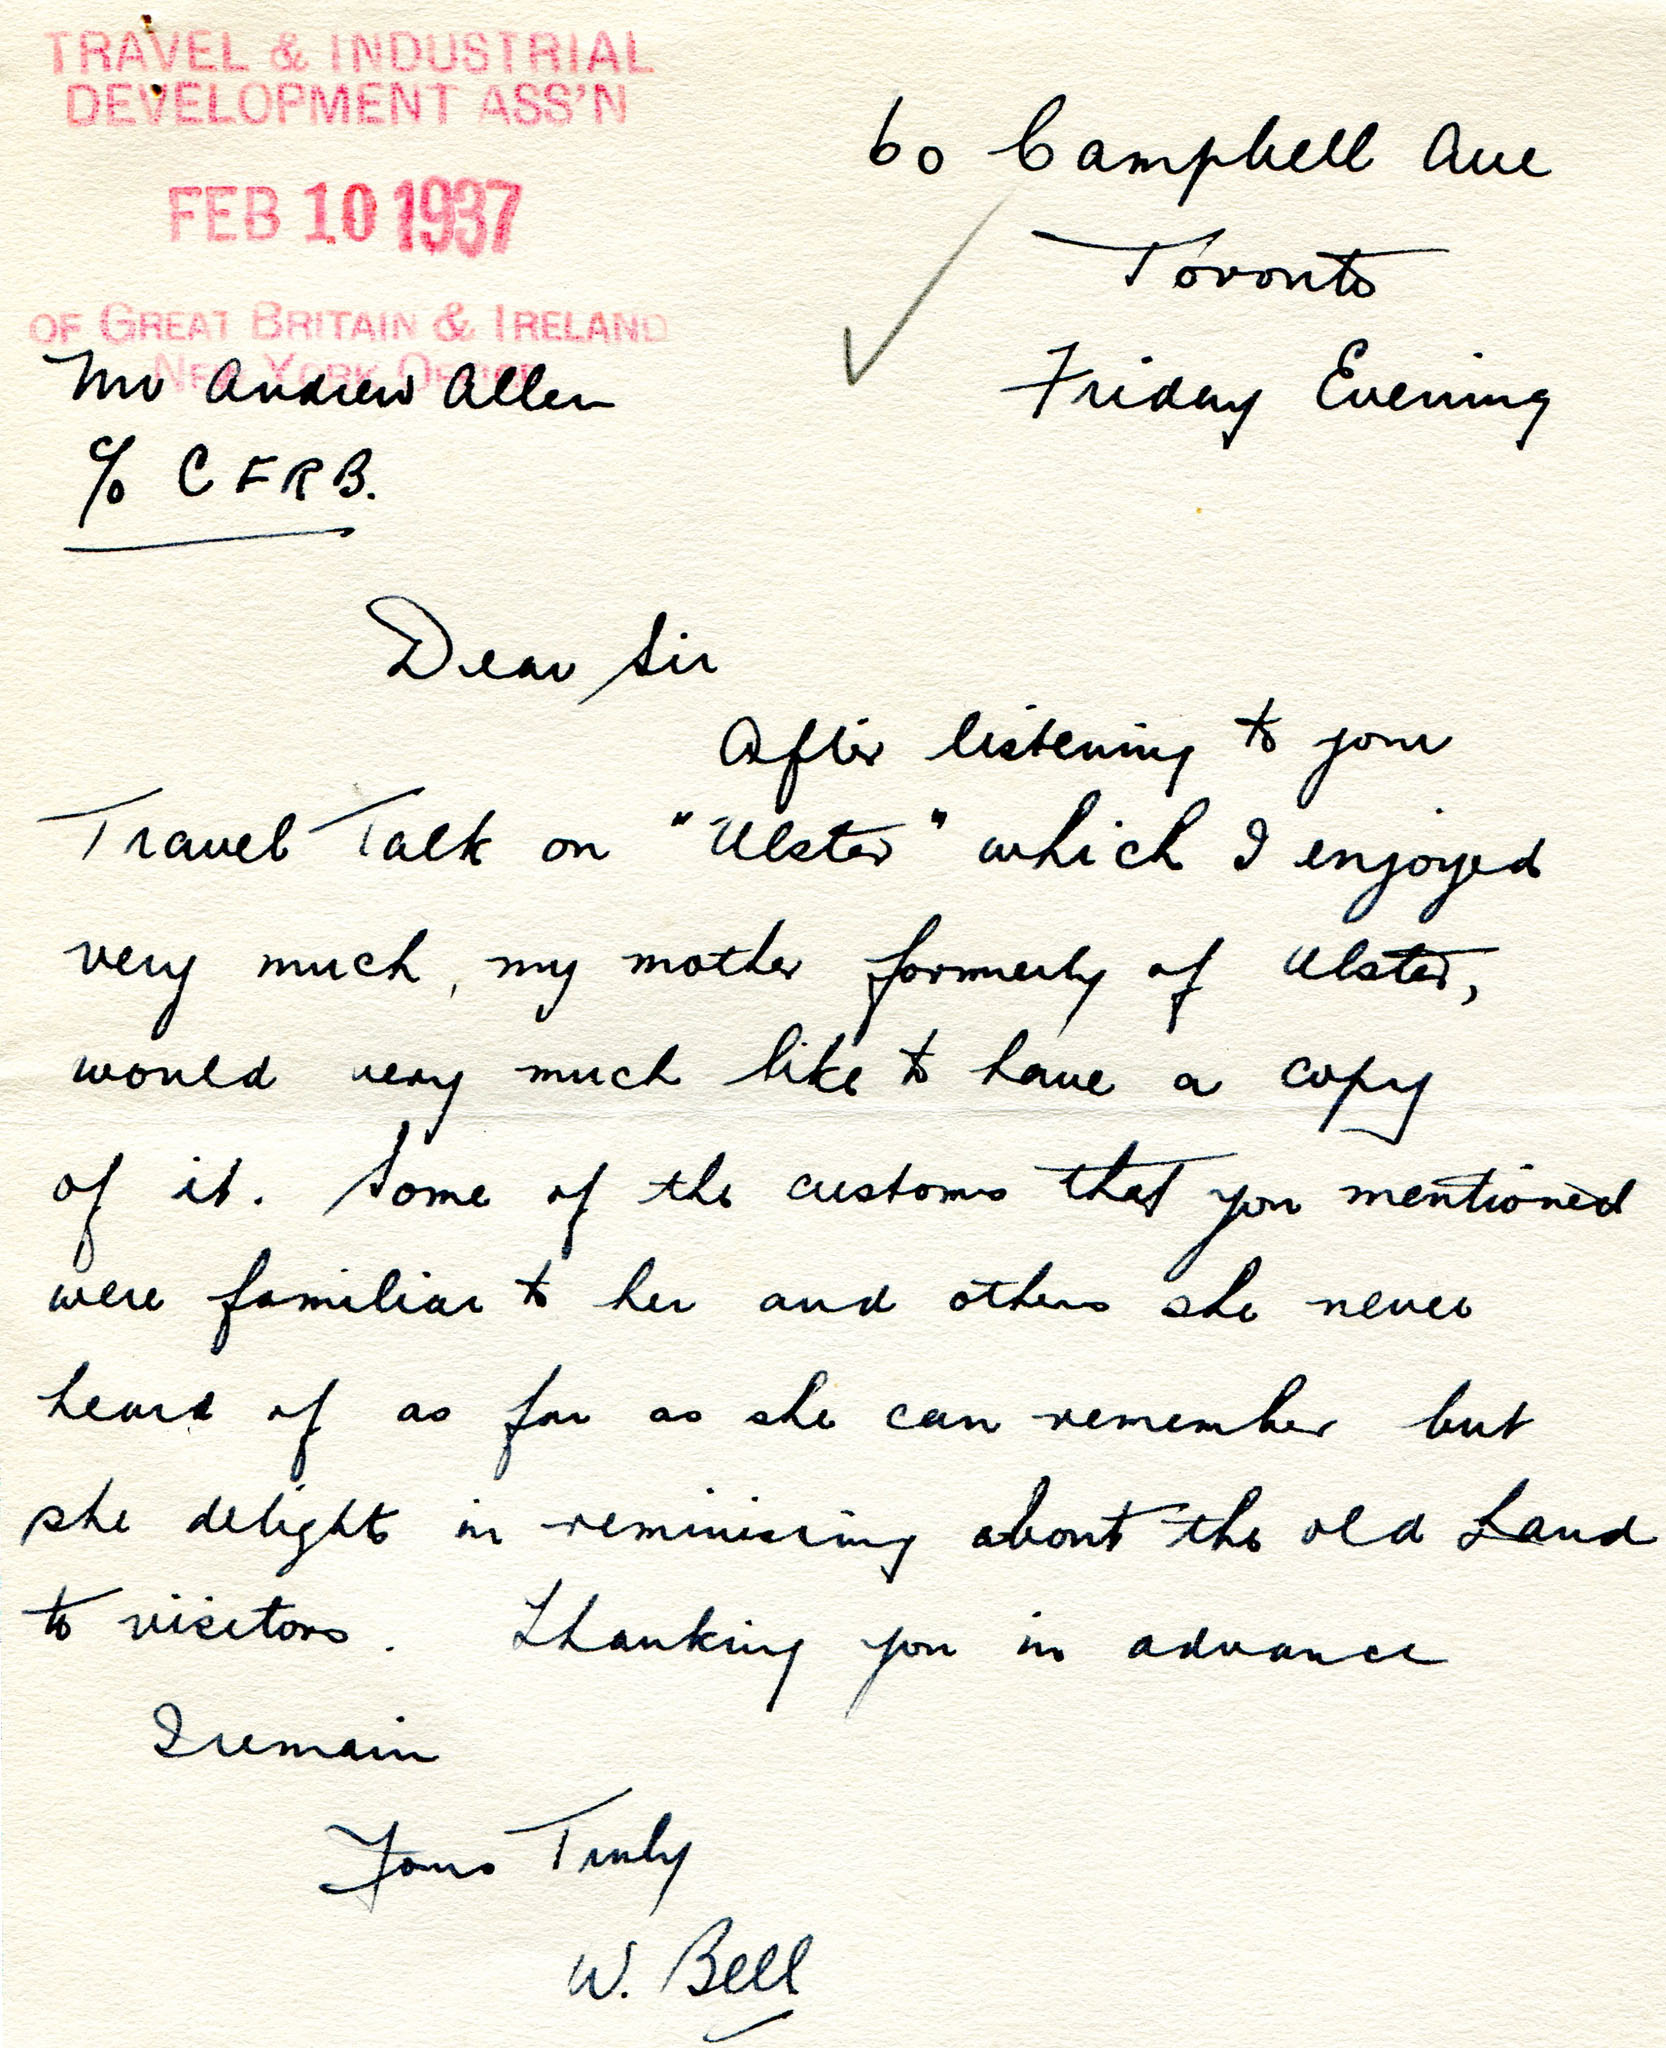 TRAVEL & INDUSTRIAL
DEVELOPMENT ASS'N
FEB 10 1937
OF GREAT BRITAIN & IRELAND
NEW YORK OFFICE
60 Campbell Ave
Toronto
Friday Evening
Mr Andrew Allen
c/o C F R B.
Dear Sir
After listening to your
Travel Talk on "Ulster" which I enjoyed
very much, my mother formerly of Ulster,
would very much like to have a copy
of it. Some of the customs that you mentioned
were familiar to her and others she never
heard of as far as she can remember but
she delights in reminising about the old Land
to visitors. Thanking you in advance
I remain
Yours Truly
W. Bell